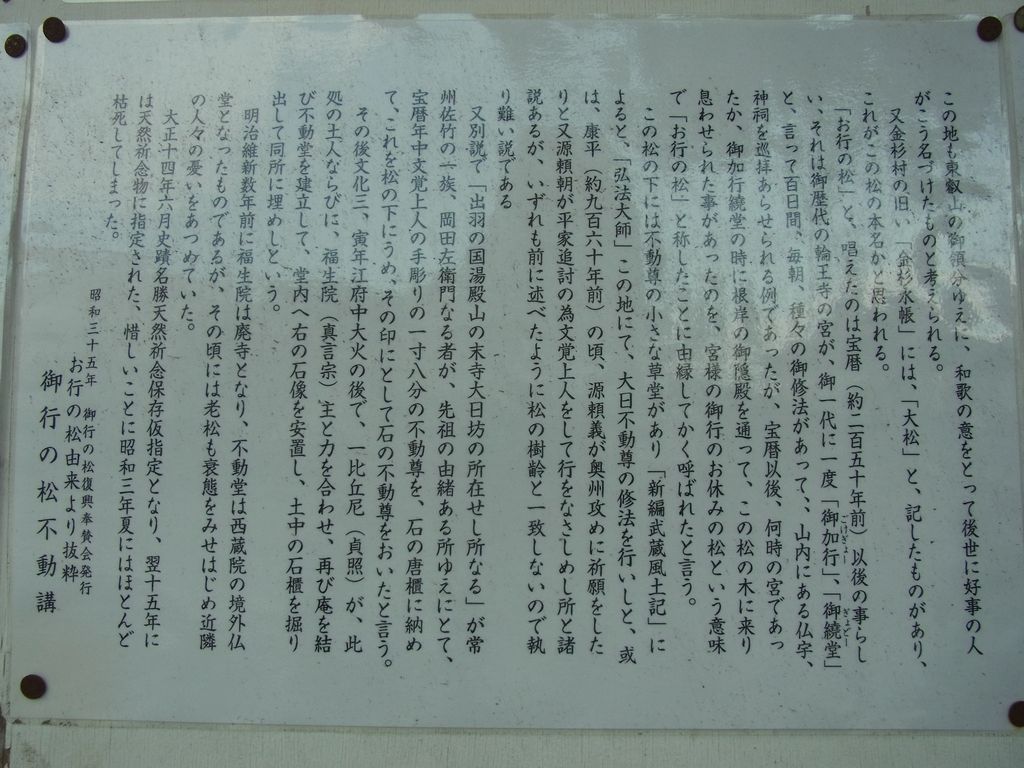 この地も東叡山の御領分ゆえに、和歌の意をとって後世に好事の人
がこう名づけたものと考えられる。
又金杉村の旧い「金杉水帳」には、「大松」と、記したものがあり、
これがこの松の本名かと思われる。
「お行の松」と、唱えたのは宝暦（約二百五十年前）以後の事らし
い、それは御歴代の輪王寺の宮が、御一代に一度「御加行」、「御繞堂」
こけぎょー
ぎょどー
と、言って百日間、毎朝、種々の御修法があって、、山内にある仏宇、
神祠を巡拝あらせられる例であったが、宝暦以後、何時の宮であっ
たか、御加行繞堂の時に根岸の御隠殿を通って、この松の木に来り
息わせられた事があったのを、宮様の御行のお休みの松という意味
で「お行の松」と称したことに由縁してかく呼ばれたと言う。
この松の下には不動尊の小さな草堂があり「新編武蔵風土記」に
よると、「弘法大師」この地にて、大日不動尊の修法を行いしと、或
は、康平（約九百六十年前）の頃、源頼義が奥州攻めに祈願をした
りと又源頼朝が平家追討の為文覚上人をして行をなさしめし所と諸
説あるが、いずれも前に述べたように松の樹齢と一致しないので執
り難い説である
又別説で「出羽の国湯殿山の末寺大日坊の所在せし所なる」が常
州佐竹の一族、岡田左衛門なる者が、先祖の由緒ある所ゆえにとて、
宝暦年中文覚上人の手彫りの一寸八分の不動尊を、石の唐櫃に納め
て、これを松の下にうめ、その印にとして石の不動尊をおいたと言う。
その後文化三、寅年江府中大火の後で、一比丘尼（貞照）が、此
処の土人ならびに、福生院（真言宗）主と力を合わせ、再び庵を結
び不動堂を建立して、堂内へ右の石像を安置し、土中の石櫃を掘り
出して同所に埋めしという。
明治維新数年前に福生院は廃寺となり、不動堂は西蔵院の境外仏
堂となったものであるが、その頃には老松も衰態をみせはじめ近隣
の人々の憂いをあつめていた。
大正十四年六月史蹟名勝天然祈念保存仮指定となり、翌十五年に
は天然祈念物に指定された、惜しいことに昭和三年夏にはほとんど
枯死してしまった。
昭和三十五年 御行の松復興奉賛会発行
お行の松由来より抜粋
御行の松不動講